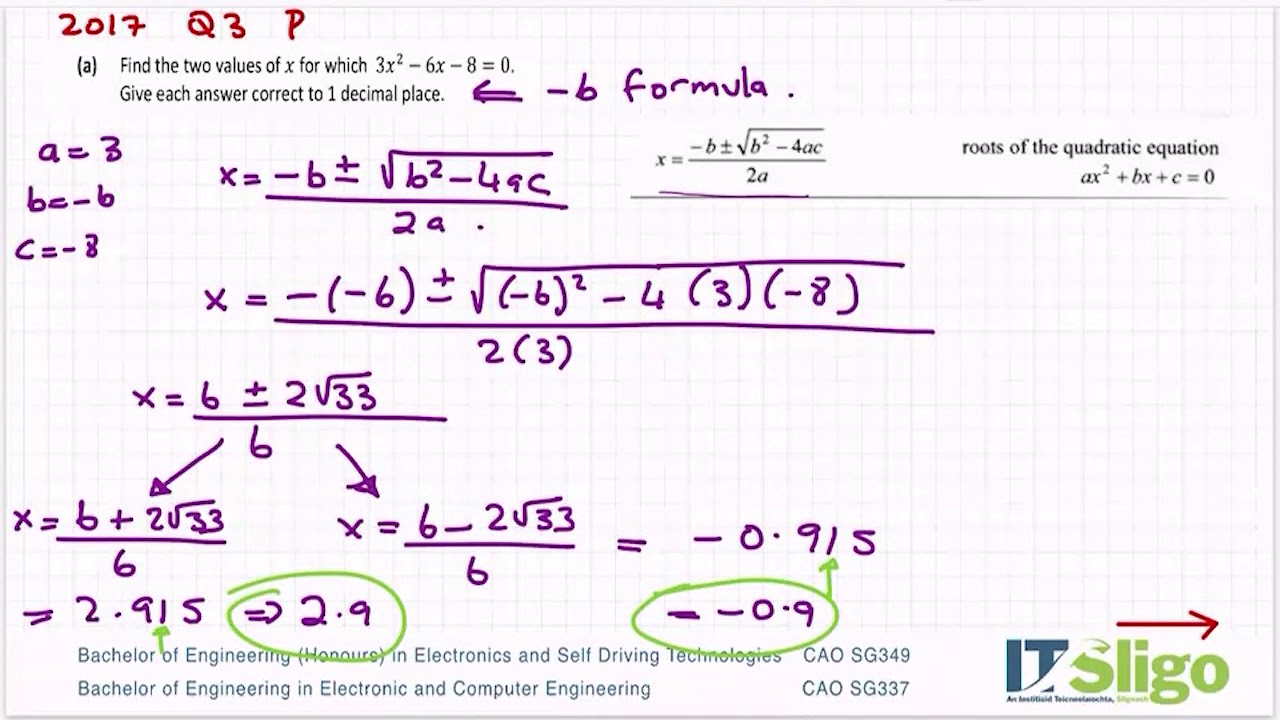 2017 Q3 P
(a) Find the two values of x for which 3x² − 6x − 8 = 0.
Give each answer correct to 1 decimal place. ⇐ -b formula.
a = 3
b = -6
c = -8
x = -b ± √(b² - 4ac) / 2a.
x = −b ± √(b² − 4ac) / 2a
roots of the quadratic equation
ax² + bx + c = 0
x = -(-6) ± √((-6)² - 4 (3)(-8)) / 2(3)
x = 6 ± 2√33 / 6
x = 6 + 2√33 / 6
= 2.915 ⇒ 2.9
x = 6 - 2√33 / 6 = -0.915
= -0.9
Bachelor of Engineering (Honours) in Electronics and Self Driving Technologies CAO SG349
Bachelor of Engineering in Electronic and Computer Engineering CAO SG337
IT Sligo
An Institiúid Teicneolaíochta, Sligeach